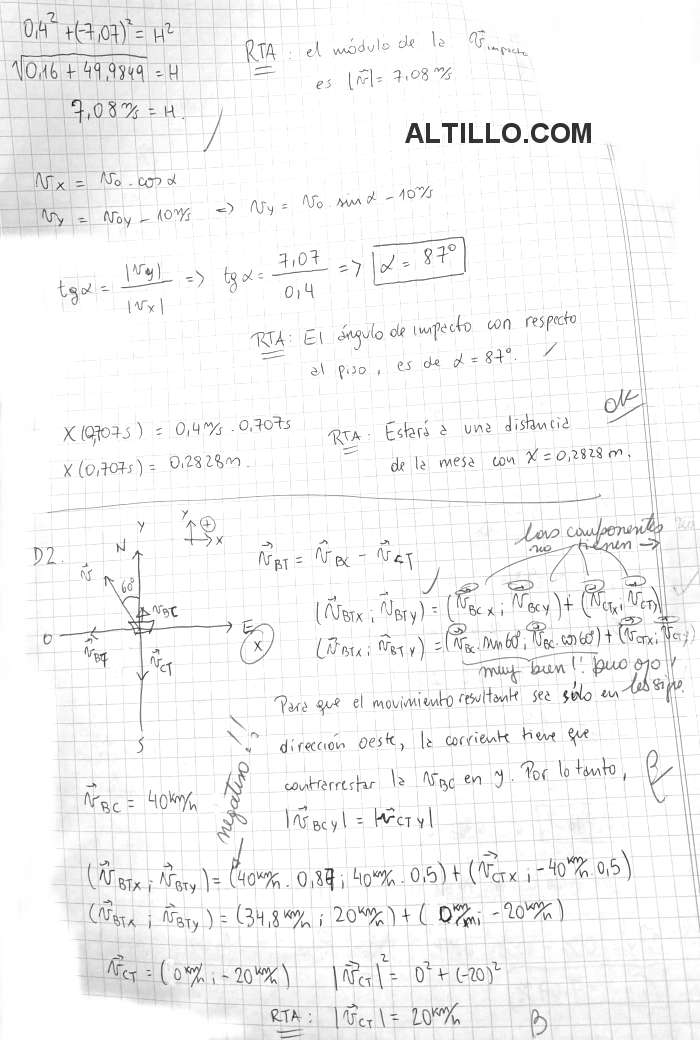 0,4² + (-7,07)² = H²
√0,16 + 49,9849 = H
7,08 m/s = H.
RTA: el módulo de la v⃗ impacto
es |v⃗| = 7,08 m/s
ALTILLO.COM
Vx = Vo . cos α
Vy = Voy - 10 m/s => Vy = Vo . sin α - 10 m/s
tg α = |Vy| / |Vx| => tg α = 7,07 / 0,4 => α = 87°
RTA: El ángulo de impacto con respecto
al piso, es de α = 87°.
X(0,707s) = 0,4 m/s . 0,707s
X(0,707s) = 0,2828 m.
RTA: Estará a una distancia
de la mesa con X = 0,2828 m.
OK
D2.
y
N
y
x
+
v⃗
60°
v⃗BC
O
E
x
v⃗BT
v⃗CT
S
v⃗BT = v⃗BC - v⃗CT
las componentes
no tienen →
(v⃗BTx ; v⃗BTy) = (v⃗BCx ; v⃗BCy) + (v⃗CTx ; v⃗CT)
(v⃗BTx ; v⃗BTy) = (v⃗BC . sin 60° ; v⃗BC . cos 60°) + (v⃗CTx ; v⃗CTy)
muy bien!! pero ojo
Para que el movimiento resultante sea sólo en
dirección oeste, la corriente tiene que
contrarrestar la vBC en y. Por lo tanto,
|v⃗BCy| = |v⃗CTy|
v⃗BC = 40 km/h
negativo!!
(v⃗BTx ; v⃗BTy) = (40 km/h . 0,87 ; 40 km/h . 0,5) + (v⃗CTx ; -40 km/h . 0,5)
(v⃗BTx ; v⃗BTy) = (34,8 km/h ; 20 km/h) + (0 km/h ; -20 km/h)
v⃗CT = (0 km/h ; -20 km/h) |v⃗CT|² = 0² + (-20)²
RTA: |v⃗CT| = 20 km/h
B